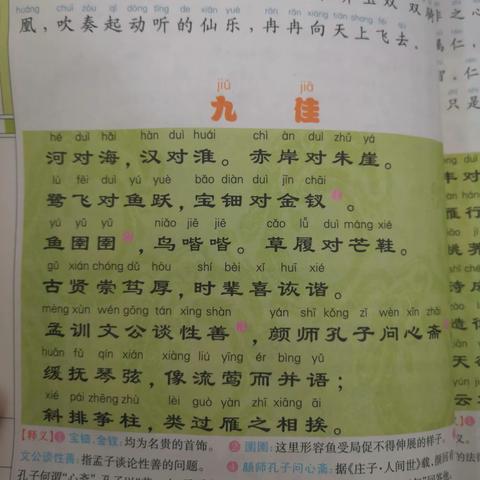 huáng chuī zòu qǐ dòng tīng de xiān yuè rǎn rǎn xiàng tiān shang fēi qù
凰，吹奏起动听的仙乐，冉冉向天上飞去。
jiǔ jiā
九 佳
hé duì hǎi hàn duì huái chì àn duì zhū yá
河对海，汉对淮。赤岸对朱崖。
lù fēi duì yú yuè bǎo diàn duì jīn chāi
鹭飞对鱼跃，宝钿对金钗❶。
yú yǔ yǔ niǎo jiē jiē cǎo lǚ duì máng xié
鱼圉圉❷，鸟喈喈。草履对芒鞋。
gǔ xián chóng dǔ hòu shí bèi xǐ huī xié
古贤崇笃厚，时辈喜诙谐。
mèng xùn wén gōng tán xìng shàn yán shī kǒng zǐ wèn xīn zhāi
孟训文公谈性善❸，颜师孔子问心斋❹
huǎn fǔ qín xián xiàng liú yīng ér bìng yǔ
缓抚琴弦，像流莺而并语；
xié pái zhēng zhù lèi guò yàn zhī xiāng āi
斜排筝柱，类过雁之相挨。
【释义】❶宝钿、金钗：均为名贵的首饰。 ❷圉圉：这里形容鱼受局促不得伸展的样子。
文公谈性善：指孟子谈论性善的问题。 ❹颜师孔子问心斋：据《庄子·人间世》载，颜回